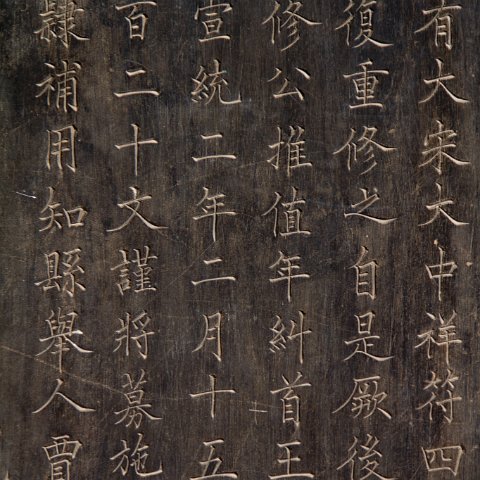 有大宋大中祥符四
復重修之自是厥後
修公推值年糾首王
宣統二年二月十五
百二十文謹將募施
隸補用知縣舉人賈